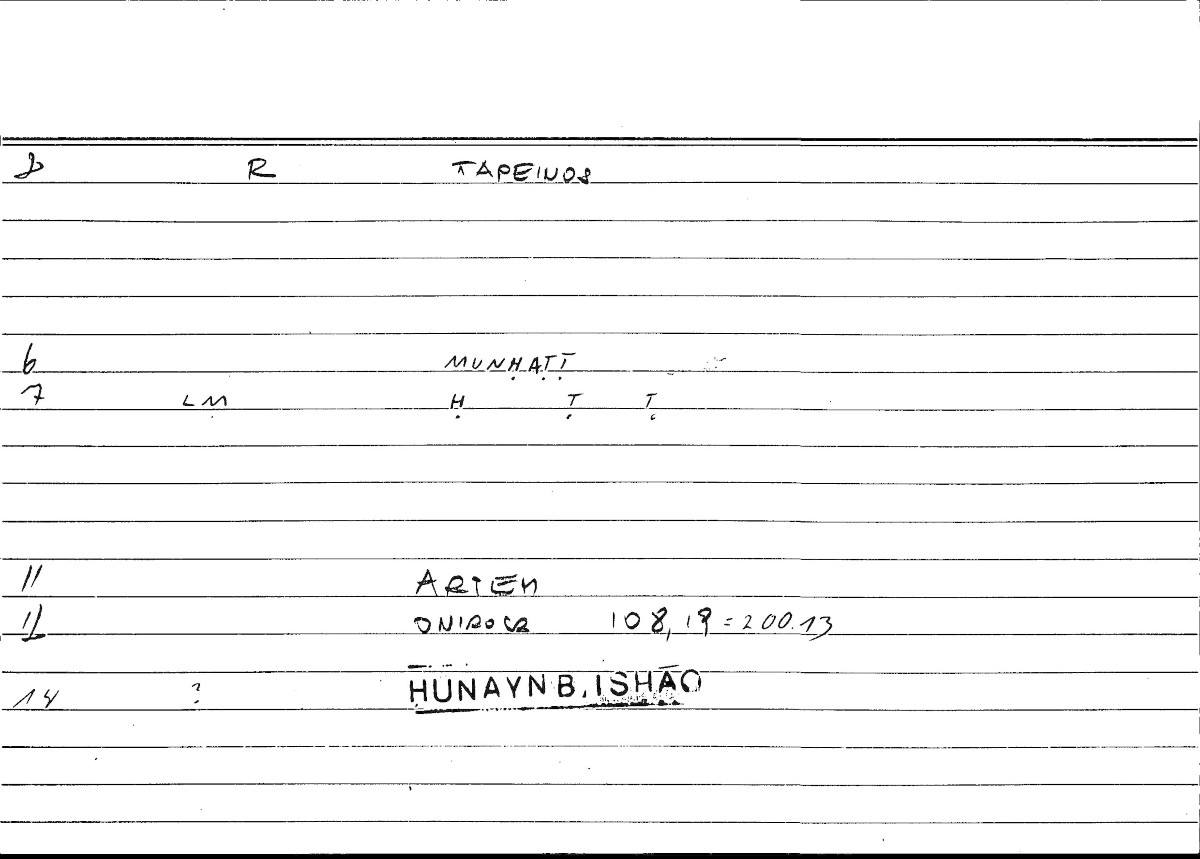 R TAPEINOS
6 MUNḤAṬṬ
7 LM Ḥ Ṭ Ṭ
11 ARTEM
12 ONIROCR 108,19=200.13
14 ? ḤUNAYN B. ISḤĀQ